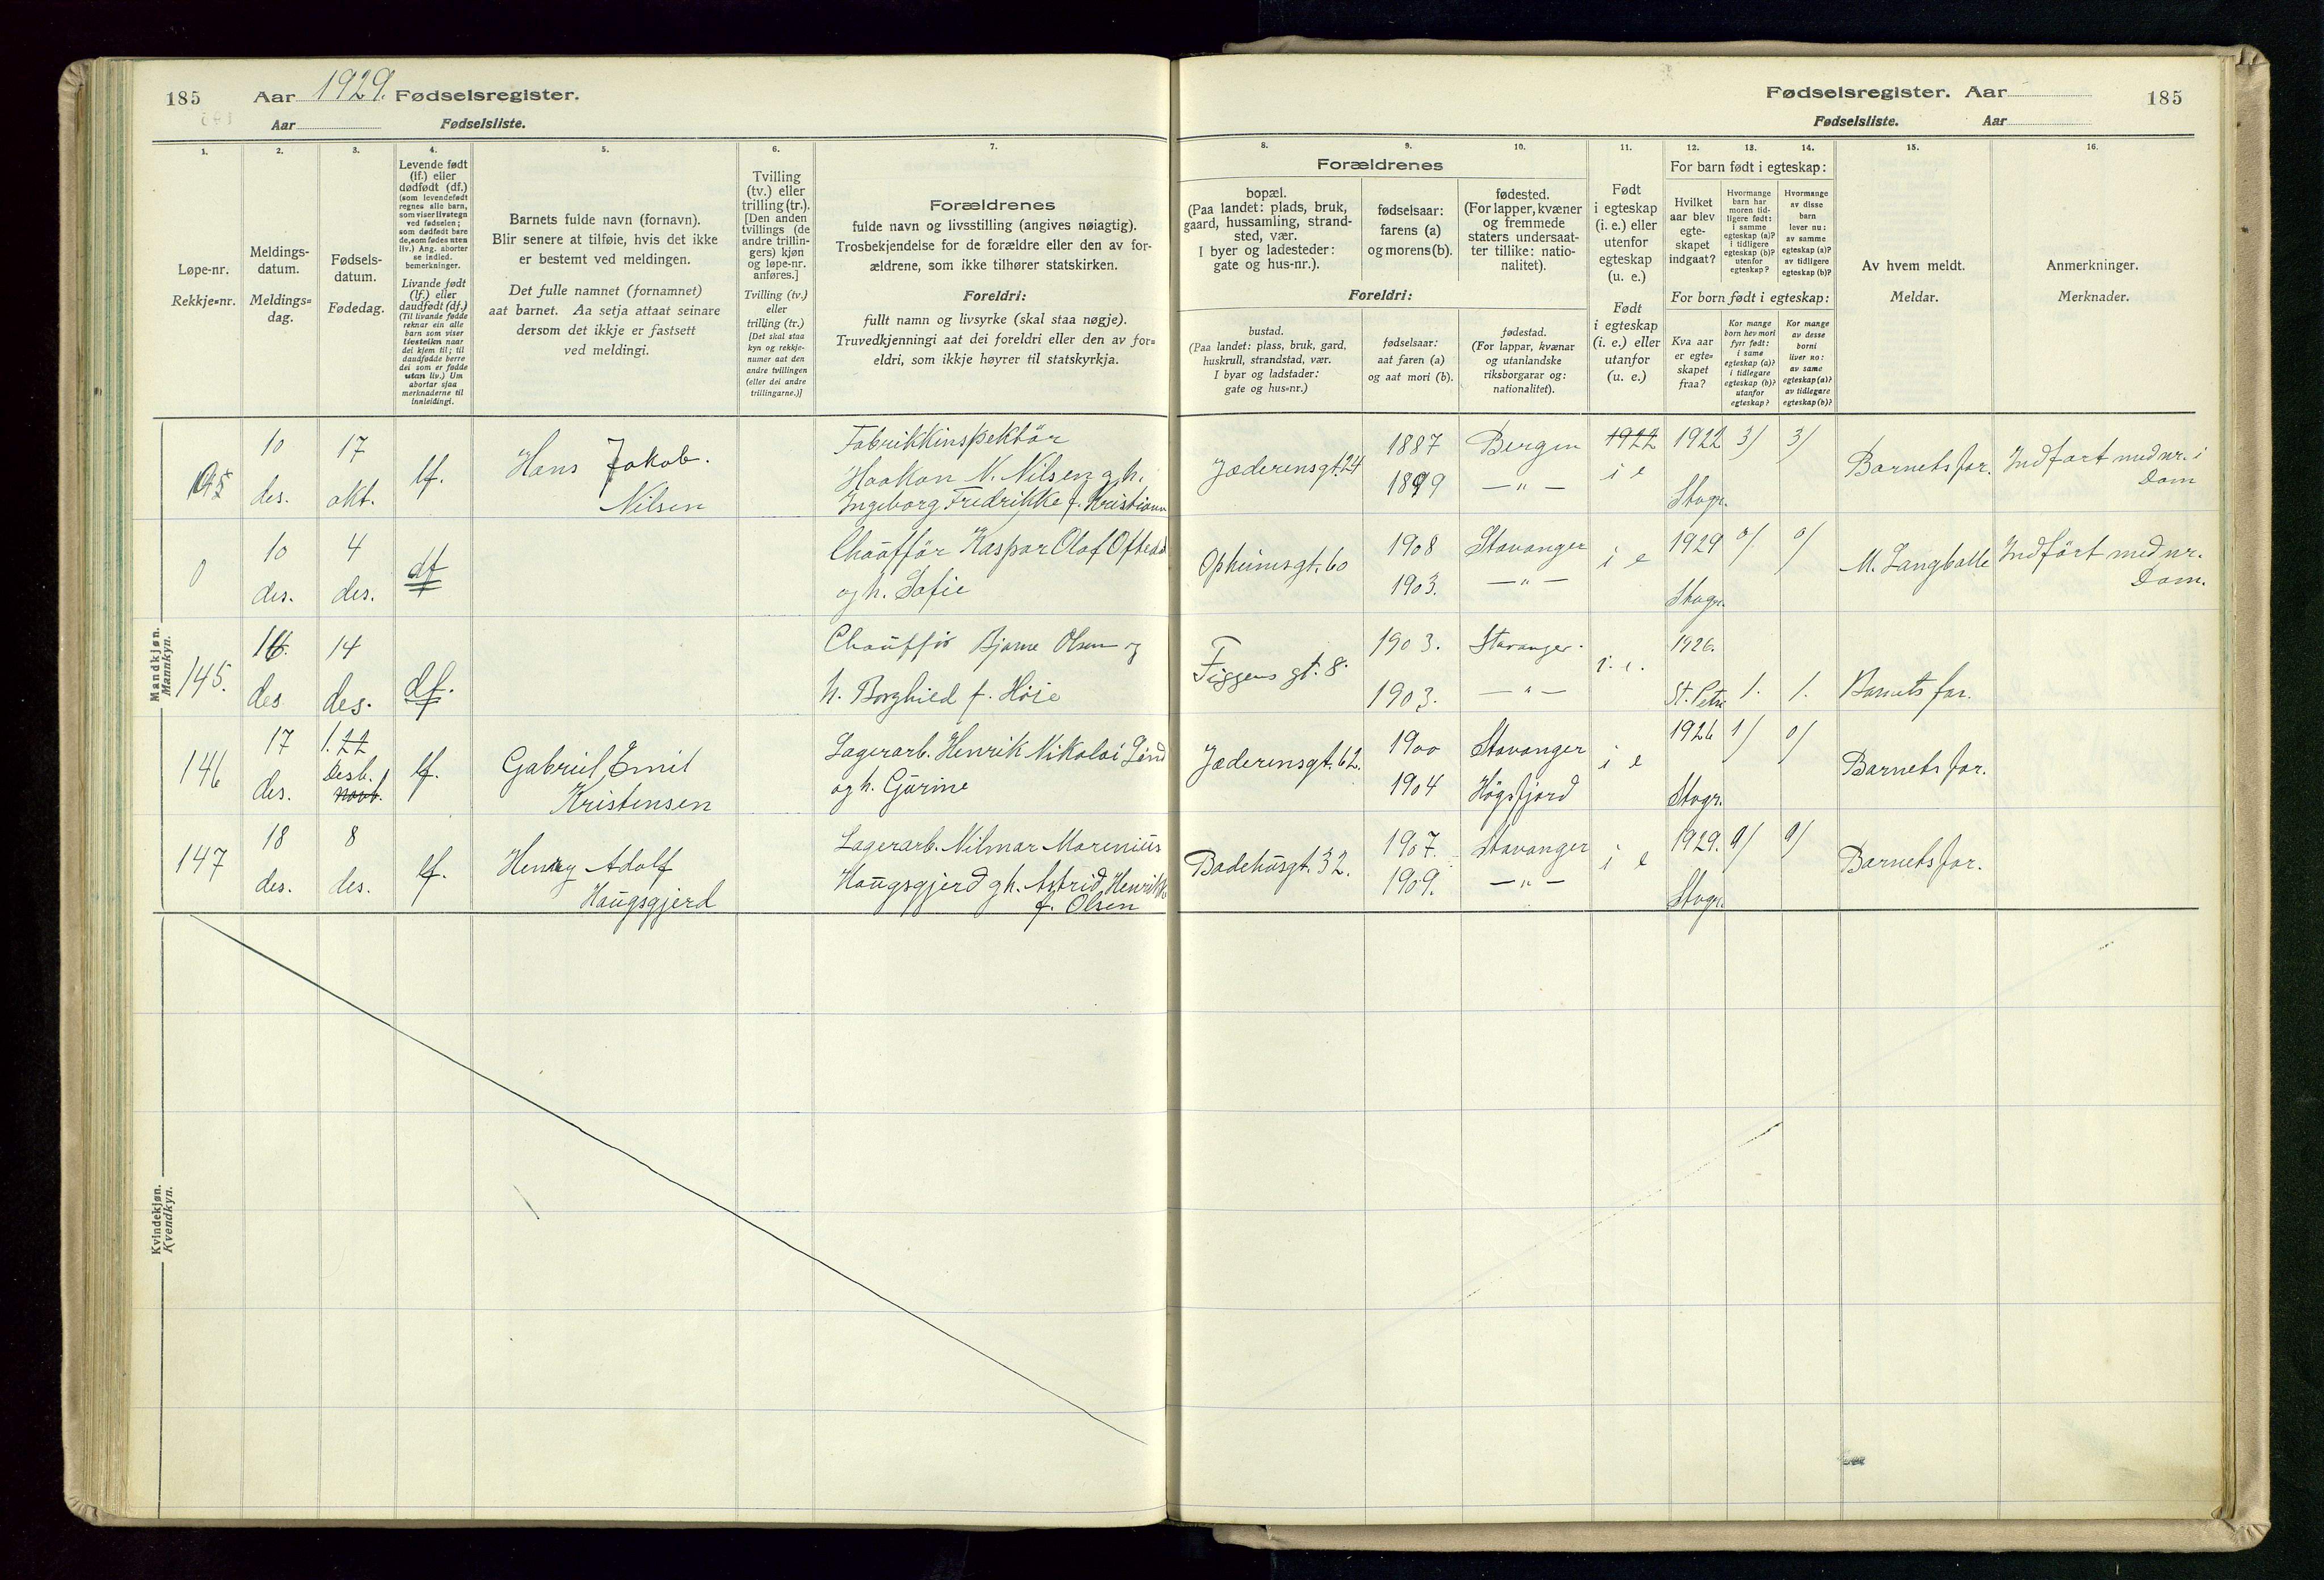 185 Aar 1929. Fødselsregister.
Aar Fødselsliste.
1.
Løpe-nr.
Rekkje=nr.
2.
Meldings-
datum.
Meldings=
dag.
3.
Fødsels-
datum.
Fødedag.
4.
Levende født
(lf.) eller
dødfødt (df.)
(som levendefødt
regnes alle barn,
som viser livstegn
ved fødselen;
som dødfødt bare
de, som fødes uten
liv.) Ang. aborter
se indled.
bemerkninger.
Livande født
(lf.) eller
daudfødt (df.)
(Til livande fødde
reknar ein alle
barn som viser
livsteikn naar
dei kjem til; til
daudfødde berre
dei som er fødde
utan liv.) Um
abortar sjaa
merknaderne til
innleidingi.
5.
Barnets fulde navn (fornavn).
Blir senere at tilføie, hvis det ikke
er bestemt ved meldingen.
Det fulle namnet (fornamnet)
aat barnet. Aa setja attaat seinare
dersom det ikkje er fastsett
ved meldingi.
6.
Tvilling
(tv.) eller
trilling (tr.).
[Den anden
tvillings (de
andre trillin-
gers) kjøn
og løpe-nr.
anføres.]
Tvilling (tv.)
eller
trilling (tr.)
[Det skal staa
kyn og rekkje-
numer aat den
andre tvillingen
(eller dei andre
trillingarne.)]
7.
Forældrenes
fulde navn og livsstilling (angives nøiagtig).
Trosbekjendelse for de forældre eller den av for-
ældrene, som ikke tilhører statskirken.
Foreldri:
fullt namn og livsyrke (skal staa nøgje).
Truvedkjenningi aat dei foreldri eller den av for=
eldri, som ikkje høyrer til statskyrkja.
Mandkjøn.
Mannkyn.
10
des.
17
okt.
lf.
Hans Jakob.
Nilsen
Fabrikkinspektør
Haakon N. Nilsen og h.
Ingeborg Fredrikke f.
0
10
des.
4
des.
df
Chauffør Kaspar Olaf Oftedal
og h. Sofie
145.
16.
des
14
des.
df.
Chauffør Bjarne Olsen og
h. Borghild f. Høie
146
17
des.
1. 22
Desb.
novb.
lf.
Gabriel Emil
Kristensen
Lagerarb. Henrik Nikolai
og h. Gurine
147
18
des.
8
des.
lf.
Henry Adolf
Haugsgjerd
Lagerarb. Nilmar Marenius
Haugsgjerd og h. Astrid
f. Olsen
Kvindekjøn.
Kvendkyn.
Fødselsregister. Aar 185
Fødselsliste. Aar
Forældrenes
8.
bopæl.
(Paa landet: plads, bruk,
gaard, hussamling, strand-
sted, vær.
I byer og ladesteder:
gate og hus-nr.).
9.
fødselsaar:
farens (a)
og morens (b).
10.
fødested.
(For lapper, kvæner
og fremmede
staters undersaat-
ter tillike: natio-
nalitet).
Foreldri:
bustad.
(Paa landet: plass, bruk, gard,
huskrull, strandstad, vær.
I byar og ladstader:
gate og hus=nr.)
fødselsaar:
aat faren (a)
og aat mori (b).
fødestad.
(For lappar, kvænar
og utanlandske
riksborgarar og:
nationalitet).
11.
Født
i egteskap
(i. e.) eller
utenfor
egteskap
(u. e.)
Født
i egteskap
(i. e.) eller
utanfor
(u. e.)
12. 13. 14.
For barn født i egteskap:
Hvilket
aar blev
egte-
skapet
indgaat?
Hvormange
barn har
moren tid-
ligere født:
i samme
egteskap (a)?
i tidligere
egteskap (b)?
utenfor
egteskap?
Hvormange
av disse
barn
lever nu:
av samme
egteskap (a)?
av tidligere
egteskap (b)?
For born født i egteskap:
Kva aar
er egte=
skapet
fraa?
Kor mange
born hev mori
fyrr født:
i same
egteskap (a)?
i tidlegare
egteskap (b)?
utanfor
egteskap?
Kor mange
av desse
borni
liver no:
av same
egteskap (a)?
av tidlegare
egteskap (b)?
15.
Av hvem meldt.
Meldar.
16.
Anmerkninger.
Merknader.
Jæderensgt. 24
1887
1899
Bergen
— " —
1922
i e
1922
Stvgr.
3/
3/
Barnets far.
Indført med nr. i
Dom
Opheimsgt. 60
1908
1903.
Stavanger
— " —
i e
1929
Stvgr.
0/
0/
M. Langballe
Indført med nr.
Dom.
Figgens gt. 8.
1903.
1903.
Stavanger.
— " —
i. e.
1926.
St. Petri
1.
1.
Barnets far.
Jæderensgt. 62.
1900
1904
Stavanger
Høgsfjord
i e
1926
Stvgr.
1/
0/
Barnets far.
Badehusgt. 32.
1907.
1909.
Stavanger
— " —
i e
1929.
Stvgr.
0/
0/
Barnets far.